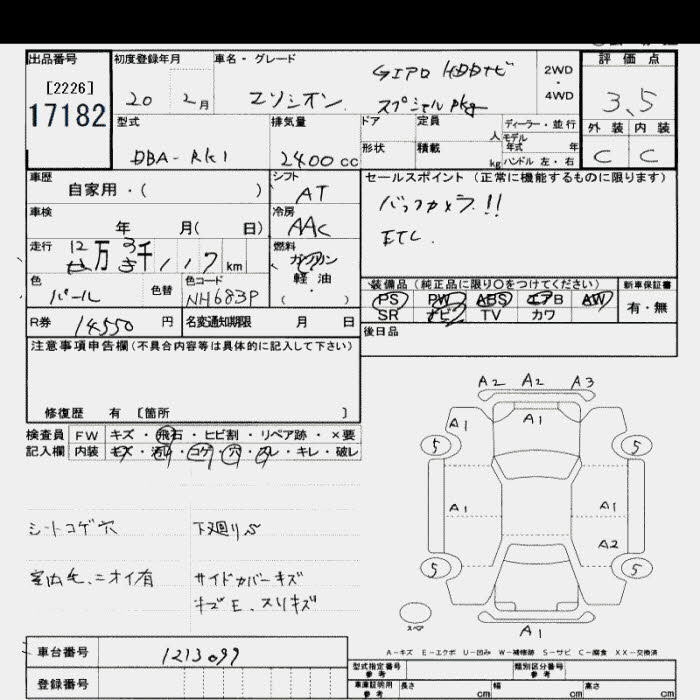 出品番号 初度登録年月 車名・グレード 評価点
[2226]
17182
20 2月
エリシオン
Gエアロ HDDナビ
スペシャルpkg
2WD
・
4WD
3.5
外装 内装
C C
型式 排気量 ドア 定員 人 ディーラー・並行
モデル年式 年
DBA-RR1 2400cc
形状 積載 kg ハンドル 左・右
車歴 自家用・( )
シフト AT
セールスポイント (正常に機能するものに限ります)
バックカメラ!!
ETC
車検 年 月( 日)
冷房 AAC
走行 12万3千117km
燃料 ガソリン
軽油
( ・ )
色 パール 色替
色コード NH683P
装備品 (純正品に限り〇をつけてください) 新車保証書
PS PW ABS エアB AW
SR ナビ TV カワ
有・無
R券 14550円 名変通知期限 月 日
後日品
注意事項申告欄 (不具合内容等は具体的に記入して下さい)
修復歴 有 [箇所 ]
検査員 FW キズ・飛石・ヒビ割・リペア跡・×要
記入欄 内装 キズ・汚れ・コゲ・穴・スレ・キレ・破レ
A2 A2 A3
A1 A1
5 5
A1 A1
A2
5 5
スペア
A1
シートコゲ穴 下廻りS
室内毛、ニオイ有 サイドカバーキズ
キズE、スリキズ
A-キズ E-エクボ U-凹み W-補修跡 S-サビ C-腐食 XX-交換済
車台番号 1213099
登録番号
型式指定番号 参考 類別区分番号 参考
車庫証明用 参考 長さ cm 幅 cm 高さ cm